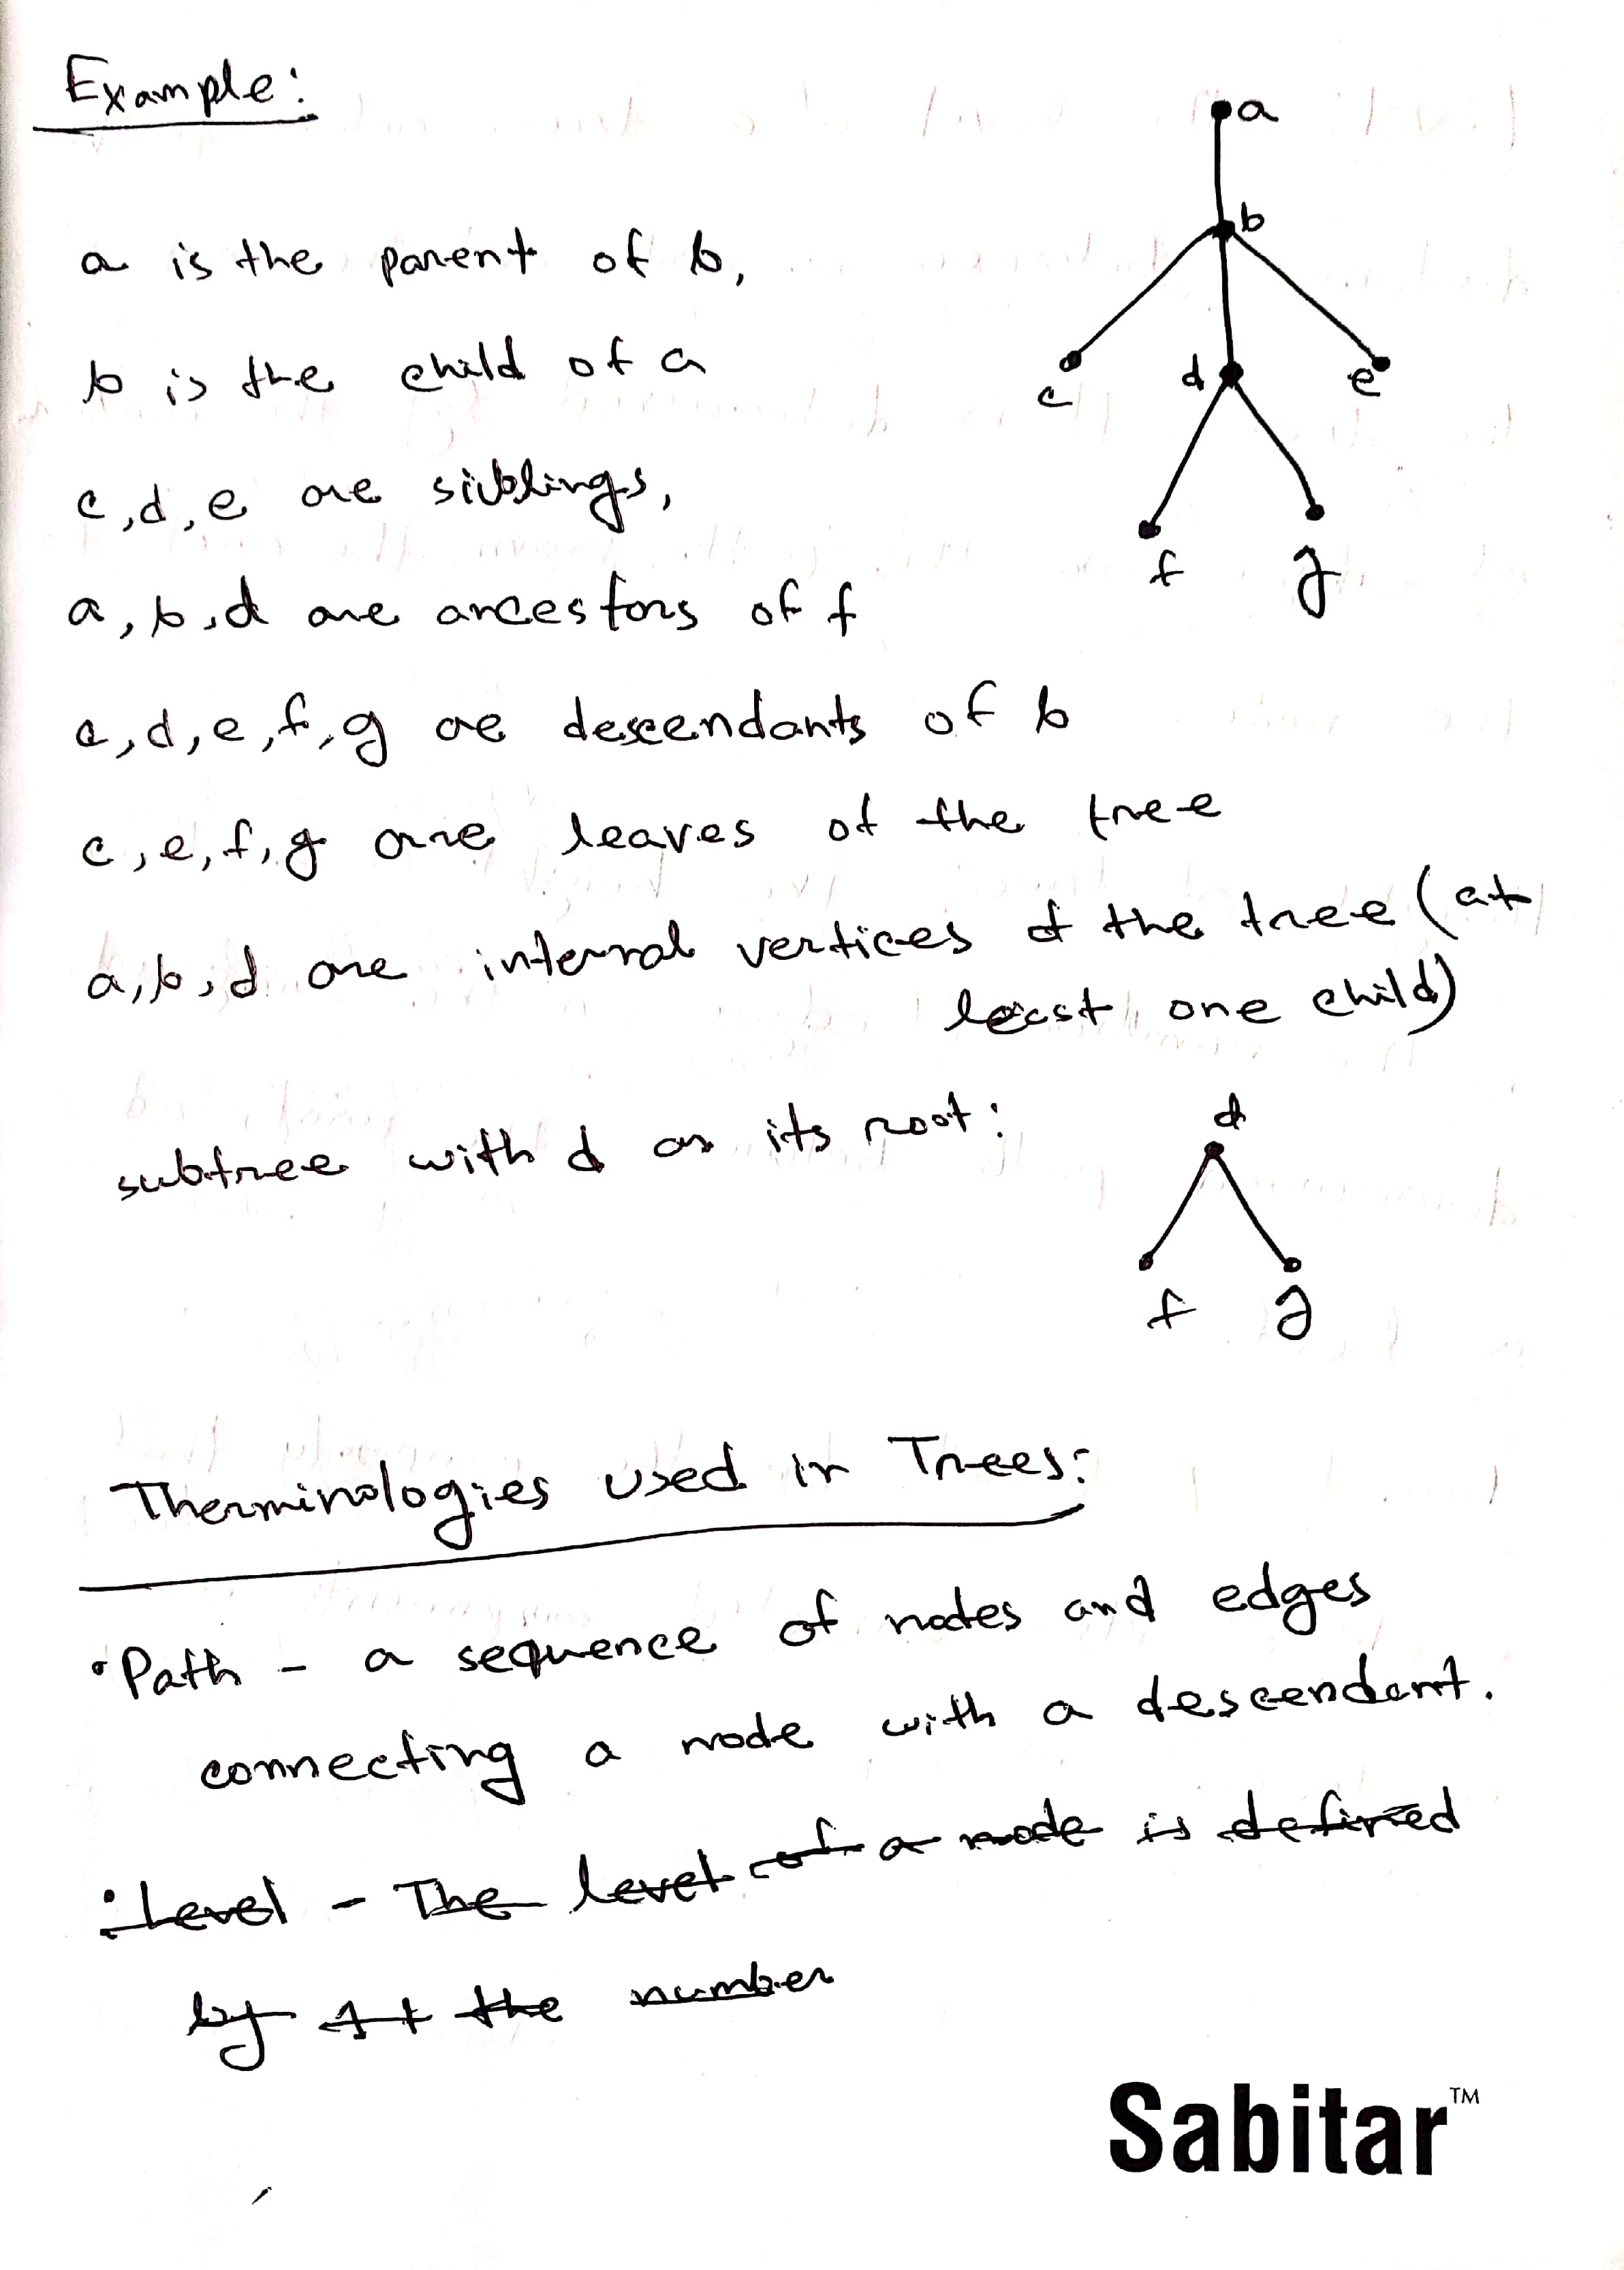 Example:
a
b
a is the parent of b,
b is the child of a
c
d
e
c, d, e are siblings,
f
g
a, b, d are ancestors of f
c, d, e, f, g are descendants of b
c, e, f, g are leaves of the tree
a, b, d are internal vertices of the tree (at
least one child)
subtree with d as its root:
d
f
g
Therminologies used in Trees:
• Path - a sequence of nodes and edges
connecting a node with a descendant.
: Level - The level of a node is defined
by 1+ the number
Sabitar™